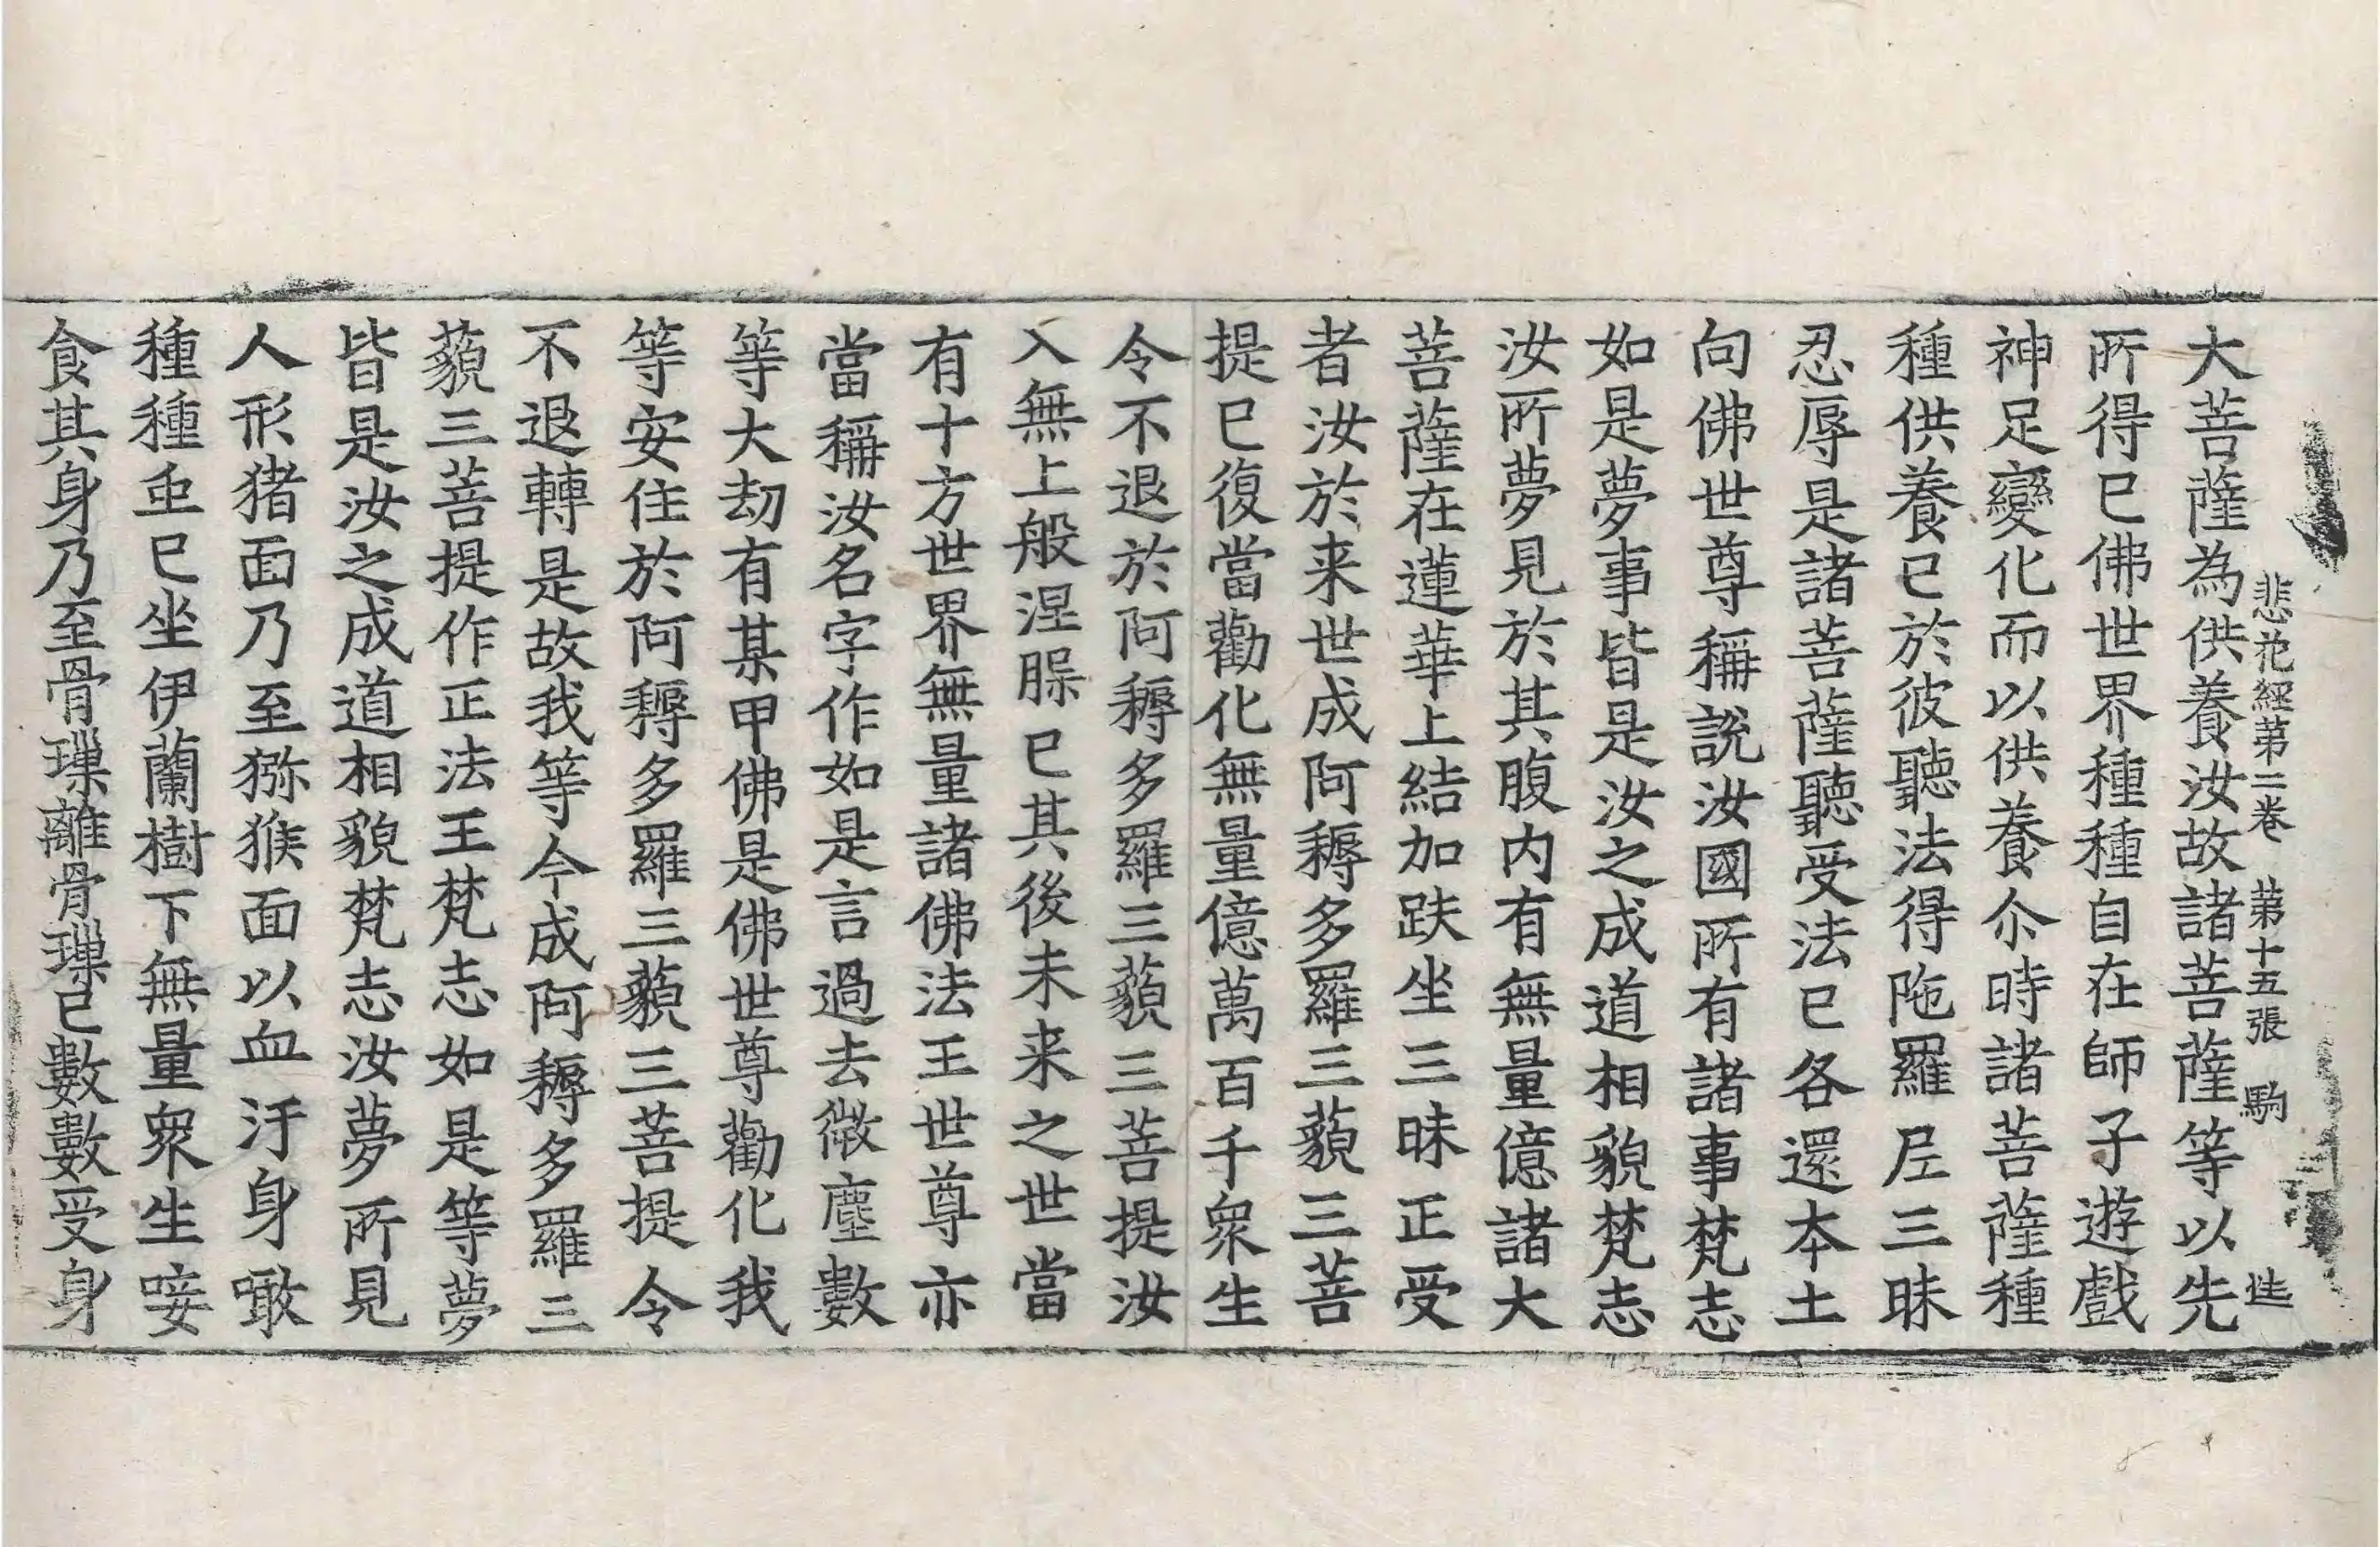 悲花經第二卷 第十五張 駒 進
大菩薩為供養汝故諸菩薩等以先
所得已佛世界種種自在師子遊戲
神足變化而以供養尒時諸菩薩種
種供養已於彼聽法得陁羅尼三昧
忍辱是諸菩薩聽受法已各還本土
向佛世尊稱說汝國所有諸事梵志
如是夢事皆是汝之成道相貌梵志
汝所夢見於其腹內有無量億諸大
菩薩在蓮華上結加趺坐三昧正受
者汝於来世成阿耨多羅三藐三菩
提已復當勸化無量億萬百千衆生
令不退於阿耨多羅三藐三菩提汝
入無上般涅槃已其後未来之世當
有十方世界無量諸佛法王世尊亦
當稱汝名字作如是言過去微塵數
等大劫有某甲佛是佛世尊勸化我
等安住於阿耨多羅三藐三菩提令
不退轉是故我等今成阿耨多羅三
藐三菩提作正法王梵志如是等夢
皆是汝之成道相貌梵志汝夢所見
人形猪面乃至獼猴面以血汙身噉
種種虫已坐伊蘭樹下無量衆生唼
食其身乃至骨璅離骨璅已數數受身